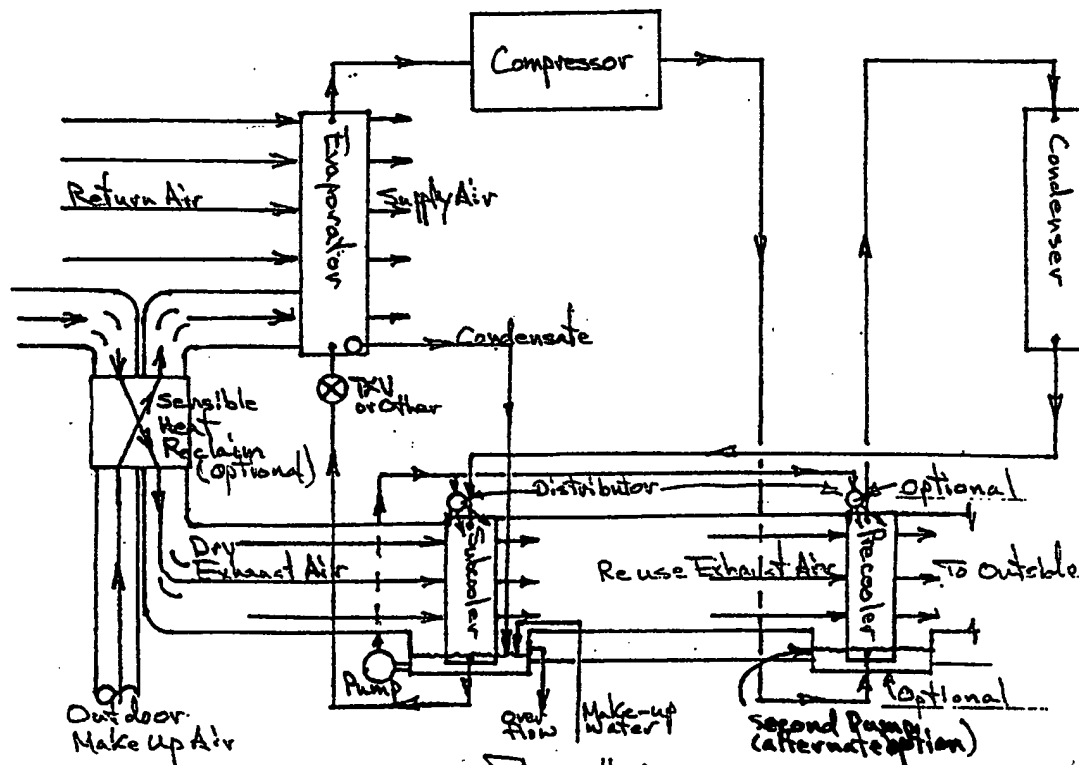 Compressor
Evaporation
Condenser
Return Air
Supply Air
Condensate
TXV
or Other
Sensible
Heat
Reclaim
(Optional)
Distributor
Optional
Dry
Exhaust Air
Subcooler
Reuse Exhaust Air
Precooler
To Outside
Pump
Over
flow
Make-up
Water
Optional
Second Pump
(alternate option)
Outdoor
Make Up Air